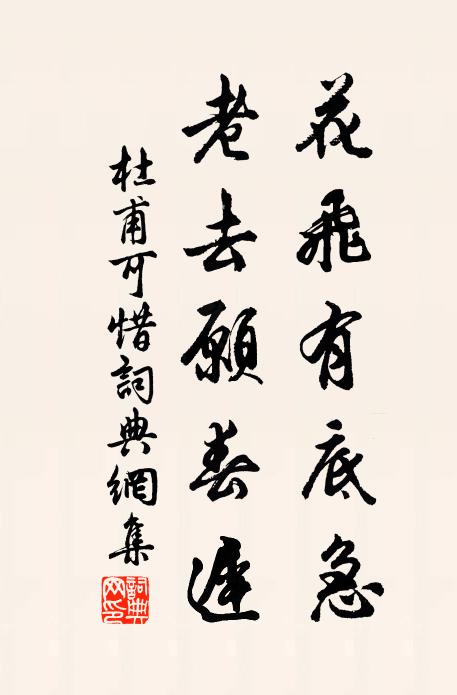 花飛有底急
老去願春遲
杜甫可惜詞典網集
詞典網印